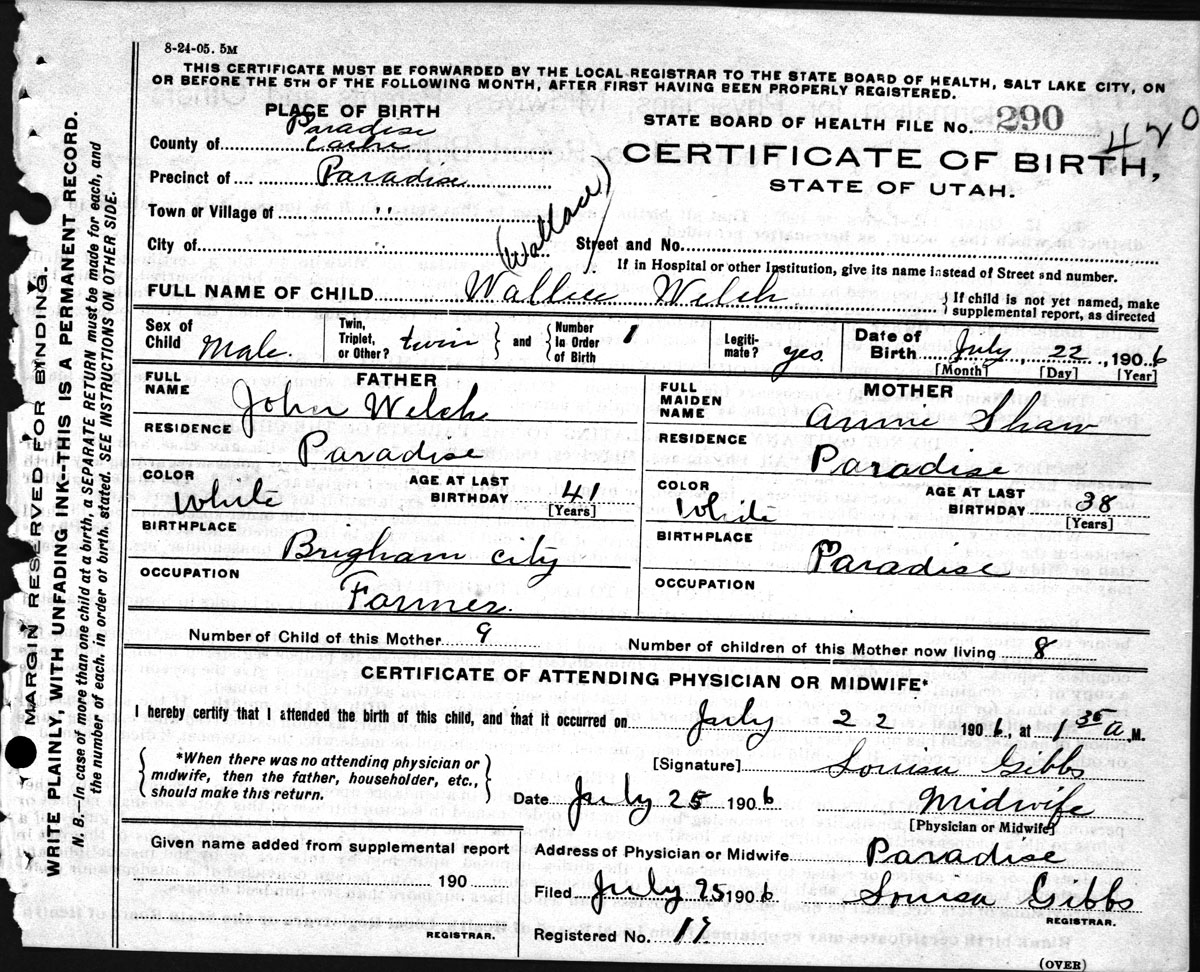 8-24-05. 5M
THIS CERTIFICATE MUST BE FORWARDED BY THE LOCAL REGISTRAR TO THE STATE BOARD OF HEALTH, SALT LAKE CITY, ON
OR BEFORE THE 5TH OF THE FOLLOWING MONTH, AFTER FIRST HAVING BEEN PROPERLY REGISTERED.
PLACE OF BIRTH
STATE BOARD OF HEALTH FILE No. 290
420
Paradise
County of Cache
CERTIFICATE OF BIRTH,
STATE OF UTAH.
Precinct of Paradise
Town or Village of "
City of "
(Wallace)
Street and No.
If in Hospital or other Institution, give its name instead of Street and number.
FULL NAME OF CHILD Wallice Welch
{ If child is not yet named, make
supplemental report, as directed
Sex of Child Male.
Twin, Triplet, or Other? twin } and { Number In Order of Birth 1
Legitimate? yes
Date of Birth July, 22, 1906
[Month] [Day] [Year]
FATHER
FULL NAME John Welch
RESIDENCE Paradise
COLOR White
AGE AT LAST BIRTHDAY 41
[Years]
BIRTHPLACE Brigham city
OCCUPATION Farmer.
MOTHER
FULL MAIDEN NAME Annie Shaw
RESIDENCE Paradise
COLOR White
AGE AT LAST BIRTHDAY 38
[Years]
BIRTHPLACE Paradise
OCCUPATION
Number of Child of this Mother 9
Number of children of this Mother now living 8
CERTIFICATE OF ATTENDING PHYSICIAN OR MIDWIFE*
I hereby certify that I attended the birth of this child, and that it occurred on July 22 1906, at 1 35 a M.
{ *When there was no attending physician or
midwife, then the father, householder, etc.,
should make this return. }
[Signature] Louisa Gibbs
Date July 25 1906
Midwife
[Physician or Midwife]
Given name added from supplemental report
190
REGISTRAR.
Address of Physician or Midwife Paradise
Filed July 25 1906 Louisa Gibbs
REGISTRAR.
Registered No.
(OVER)
MARGIN RESERVED FOR BINDING.
WRITE PLAINLY, WITH UNFADING INK--THIS IS A PERMANENT RECORD.
N. B. In case of more than one child at a birth, a SEPARATE RETURN must be made for each, and
the number of each, in order of birth, stated. SEE INSTRUCTIONS ON OTHER SIDE.